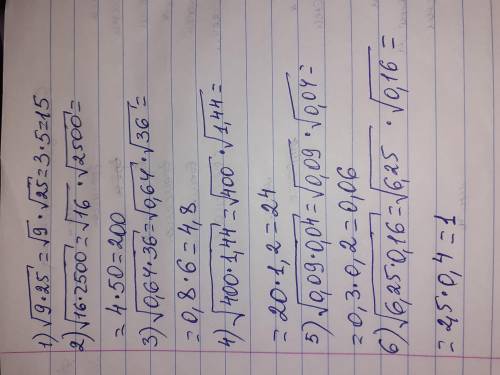 1) √9·25 = √9 · √25 = 3·5 = 15
2) √16·2500 = √16 · √2500 =
= 4·50 = 200
3) √0,64·36 = √0,64 · √36 =
= 0,8·6 = 4,8
4) √400·1,44 = √400 · √1,44 =
= 20·1,2 = 24
5) √0,09·0,04 = √0,09 · √0,04 =
= 0,3·0,2 = 0,06
6) √6,25·0,16 = √6,25 · √0,16 =
= 2,5·0,4 = 1